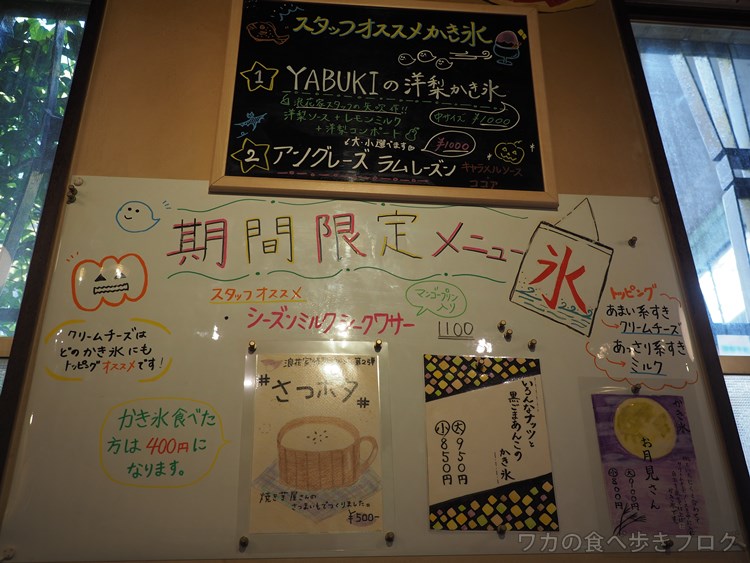 スタッフオススメかき氷
1 YABUKIの洋梨かき氷
浪花家スタッフの矢吹作!!
洋梨ソース+レモンミルク
+洋梨コンポート
中サイズ ¥1000
大・小選べます
¥1000
2 アングレーズ ラムレーズン
キャラメルソース
ココア
期間限定メニュー
氷
スタッフオススメ
マンゴープリン
入り
・シーズンミルクシークワサー 1100
トッピング
あまい系すき
クリームチーズ
あっさり系すき
ミルク
クリームチーズは
どのかき氷にも
トッピングオススメです!
かき氷食べた
方は400円に
なります。
#さつポタ#
焼き芋屋さんの
さつまいもでつくりました。
¥500-
いろんなナッツと
黒ごまあんこの
かき氷
大 950円
小 850円
かき氷
お月見さん
大 900円
小 800円
ワカの食べ歩きブログ